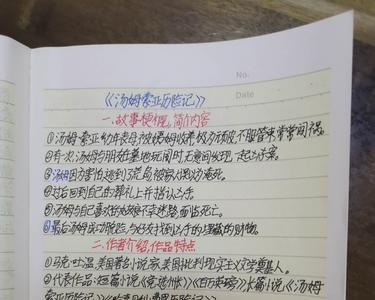 No.
Date
《汤姆·索亚历险记》
一、故事梗概, 简介内容
①汤姆·索亚幼年丧母,被姨妈收养,极为顽皮,不服管束,常常闯祸。
②有一次,汤姆与朋友在墓地玩闹时,无意间发现一起凶杀案。
③汤姆因为害怕逃到了荒岛,被家人误以为淹死。
④过后回到自己的葬礼上,并指认凶手。
⑤汤姆与自己喜欢的姑娘不幸迷路,面临死亡。
⑥最后汤姆成功脱险,与好友找到凶手的埋藏的财物。
二、作者介绍,作品特点
①马克·吐温,美国著名小说家,美国批判现实主义文学奠基人。
②代表作品:短篇小说《竞选州长》《百万英镑》,长篇小说《汤姆·
索亚历险记》《哈克贝利·费恩历险记》